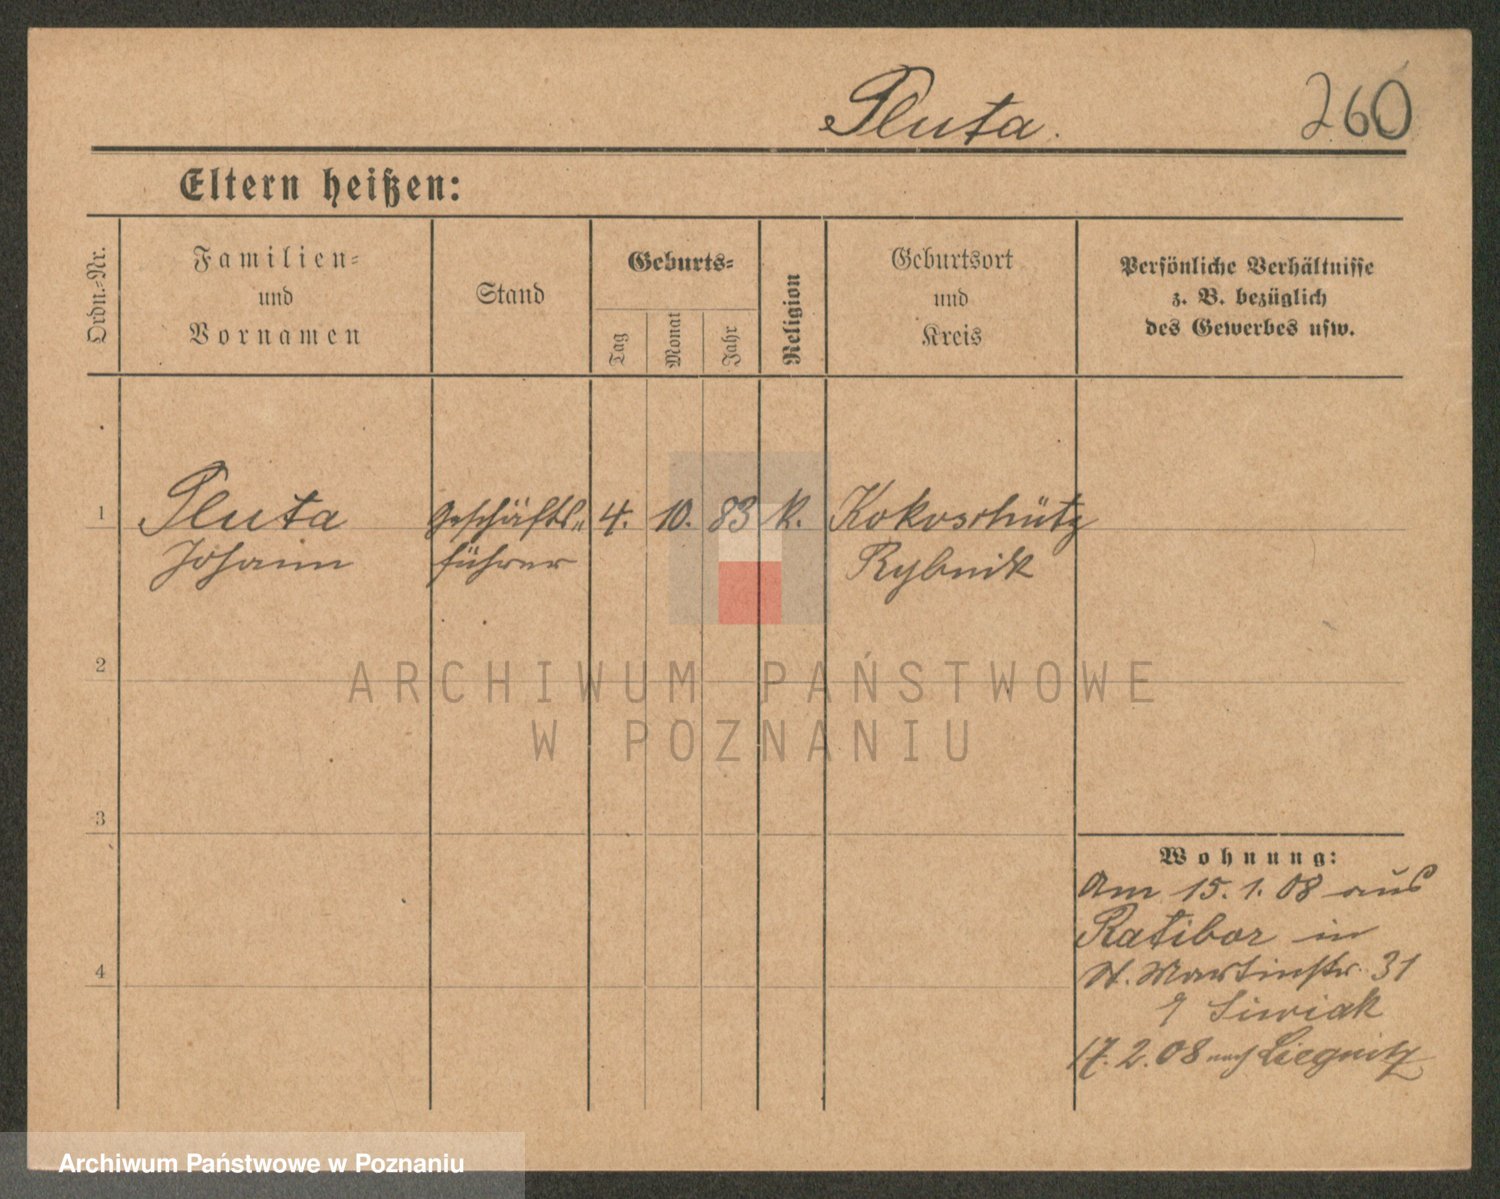 Pluta.
260
Eltern heißen:
Ordn.-Nr.
Familien-
und
Vornamen
Stand
Geburts-
Tag
Monat
Jahr
Religion
Geburtsort
und
Kreis
Persönliche Verhältnisse
z. B. bezüglich
des Gewerbes usw.
1
Pluta
Johann
Geschäfts-
führer
4. 10. 83
k.
Kokoschütz
Rybnik
2
ARCHIWUM PAŃSTWOWE
W POZNANIU
3
4
Wohnung:
Am 15.1.08 aus
Ratibor in
St. Martinstr. 31
Siwiak
17.2.08 nach Liegnitz
Archiwum Państwowe w Poznaniu